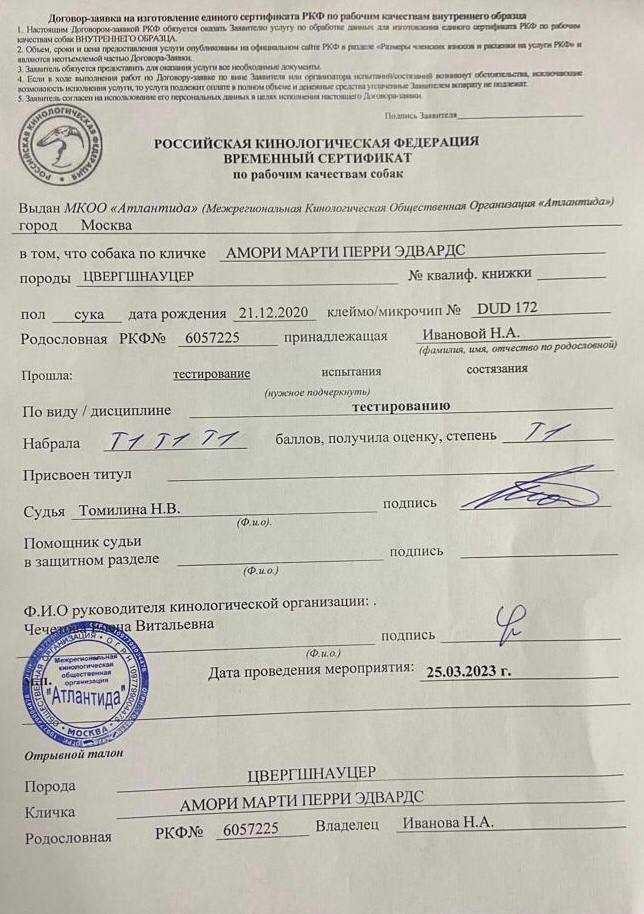 Договор-заявка на изготовление единого сертификата РКФ по рабочим качествам внутреннего образца
1. Настоящим Договором-заявкой РКФ обязуется оказать Заявителю услугу по обработке данных для изготовления единого сертификата РКФ по рабочим
качествам собак ВНУТРЕННЕГО ОБРАЗЦА.
2. Объем, сроки и цена предоставления услуги опубликованы на официальном сайте РКФ в разделе «Размеры членских взносов и расценки на услуги РКФ» и
являются неотъемлемой частью Договора-Заявки.
3. Заявитель обязуется предоставить для оказания услуги все необходимые документы.
4. Если в ходе выполнения работ по Договору-заявке по вине Заявителя или организатора испытаний/состязаний возникнут обстоятельства, исключающие
возможность исполнения услуги, то услуга подлежит оплате в полном объеме и денежные средства уплаченные Заявителем возврату не подлежат.
5. Заявитель согласен на использование его персональных данных в целях исполнения настоящего Договора-заявки.
Подпись Заявителя
РОССИЙСКАЯ КИНОЛОГИЧЕСКАЯ ФЕДЕРАЦИЯ
РОССИЙСКАЯ КИНОЛОГИЧЕСКАЯ ФЕДЕРАЦИЯ
ВРЕМЕННЫЙ СЕРТИФИКАТ
по рабочим качествам собак
Выдан МКОО «Атлантида» (Межрегиональная Кинологическая Общественная Организация «Атлантида»)
город Москва
в том, что собака по кличке АМОРИ МАРТИ ПЕРРИ ЭДВАРДС
породы ЦВЕРГШНАУЦЕР № квалиф. книжки
пол сука дата рождения 21.12.2020 клеймо/микрочип № DUD 172
Родословная РКФ№ 6057225 принадлежащая Ивановой Н.А.
(фамилия, имя, отчество по родословной)
Прошла: тестирование испытания состязания
(нужное подчеркнуть)
По виду / дисциплине тестированию
Набрала Т1 Т1 Т1 баллов, получила оценку, степень Т1
Присвоен титул
Судья Томилина Н.В. подпись
(Ф.и.о).
Помощник судьи
в защитном разделе подпись
(Ф.и.о.)
Ф.И.О руководителя кинологической организации: .
Елена Витальевна подпись
(Ф.и.о.)
Дата проведения мероприятия: 25.03.2023 г.
Межрегиональная
кинологическая
общественная
организация
"Атлантида"
МОСКВА
Отрывной талон
Порода ЦВЕРГШНАУЦЕР
Кличка АМОРИ МАРТИ ПЕРРИ ЭДВАРДС
Родословная РКФ№ 6057225 Владелец Иванова Н.А.